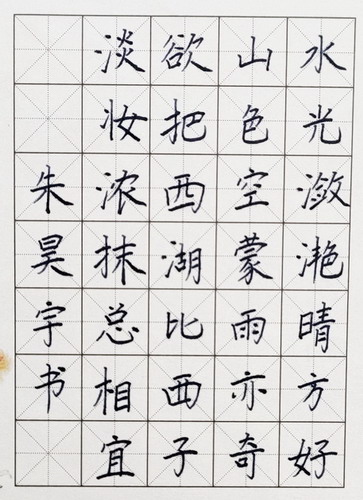 水光潋滟晴方好
山色空蒙雨亦奇
欲把西湖比西子
淡妆浓抹总相宜
朱昊宇书